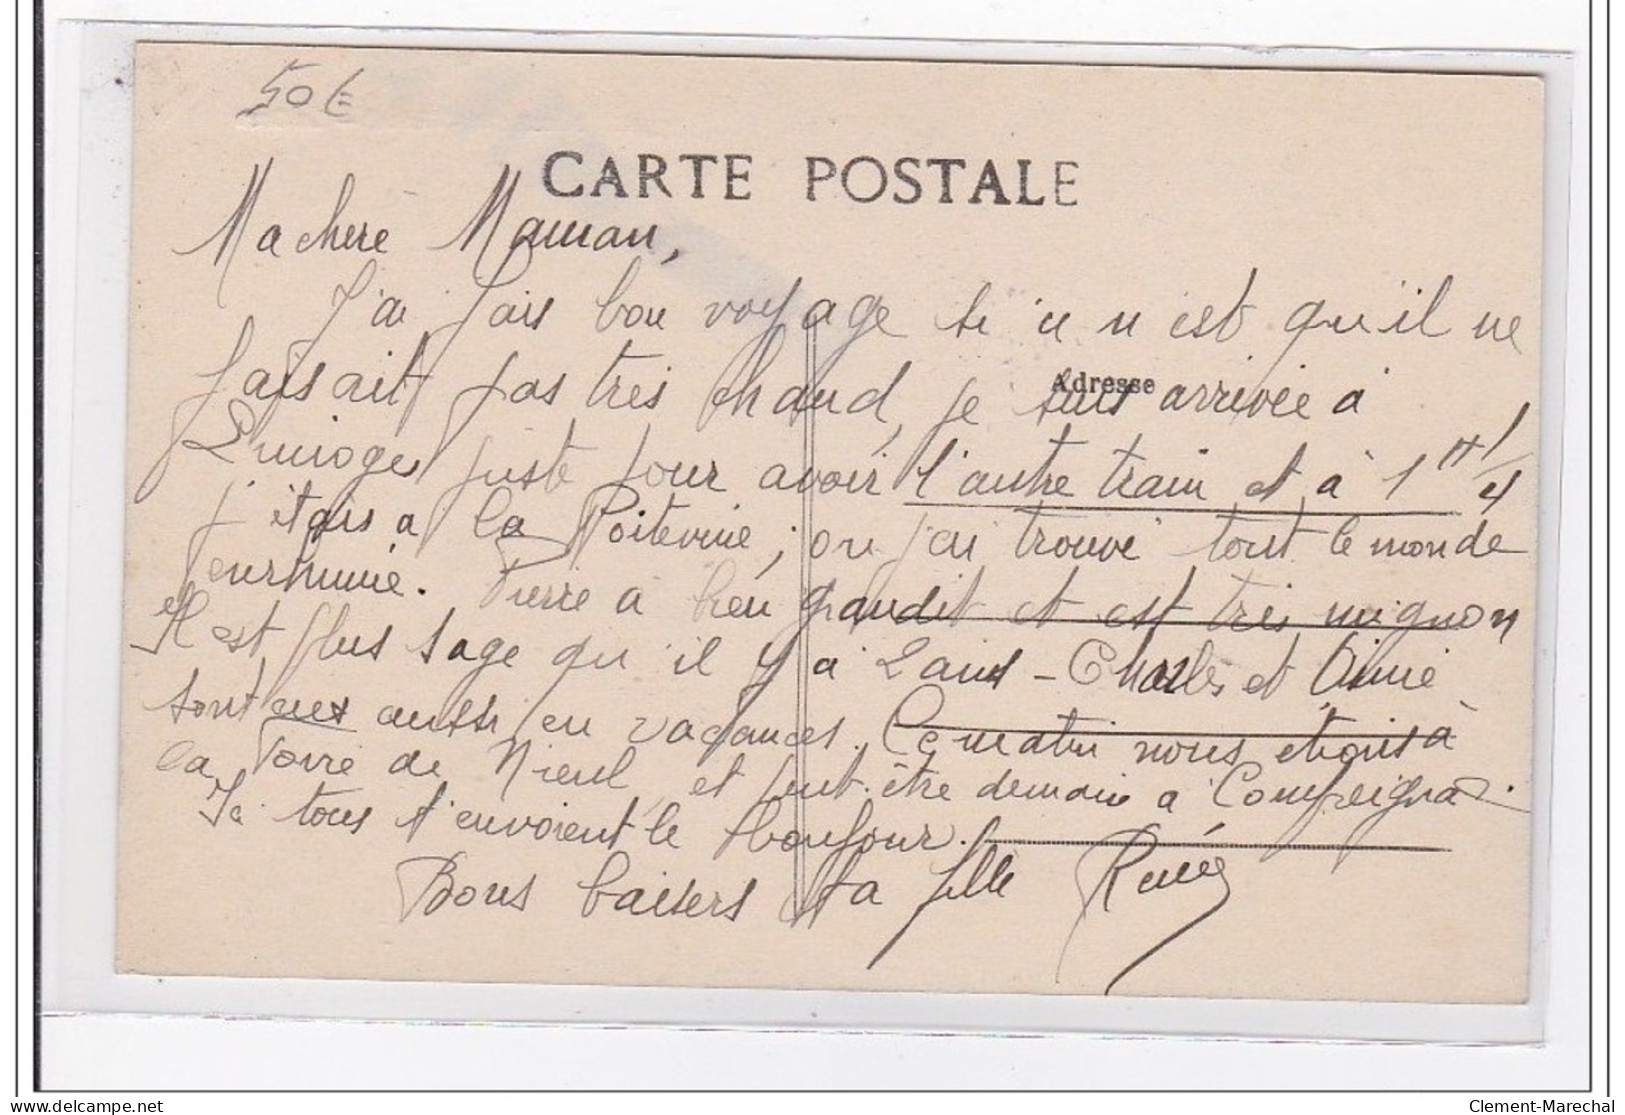 50 €
CARTE POSTALE
Ma chère Maman,
J'ai fais bon voyage si ce n'est qu'il ne
faisait pas très chaud, je suis arrivée à
Adresse
Limoges juste pour avoir l'autre train et à 1 H 1/4
j'étais a la Poitevine, ou j'ai trouvé tout le monde
enrhumé. Pierre a bien grandit et est très mignon
Il est plus sage qu'il y a 2 ans - Charles et Aimé
sont eux aussi en vacances. Ce matin nous etions à
la Foire de Nieul et peut-être demain a Compreignac.
Ici tous t'envoient le bonjour.
Bons baisers ta fille Renée
Clement-Marechal
delcampe.net